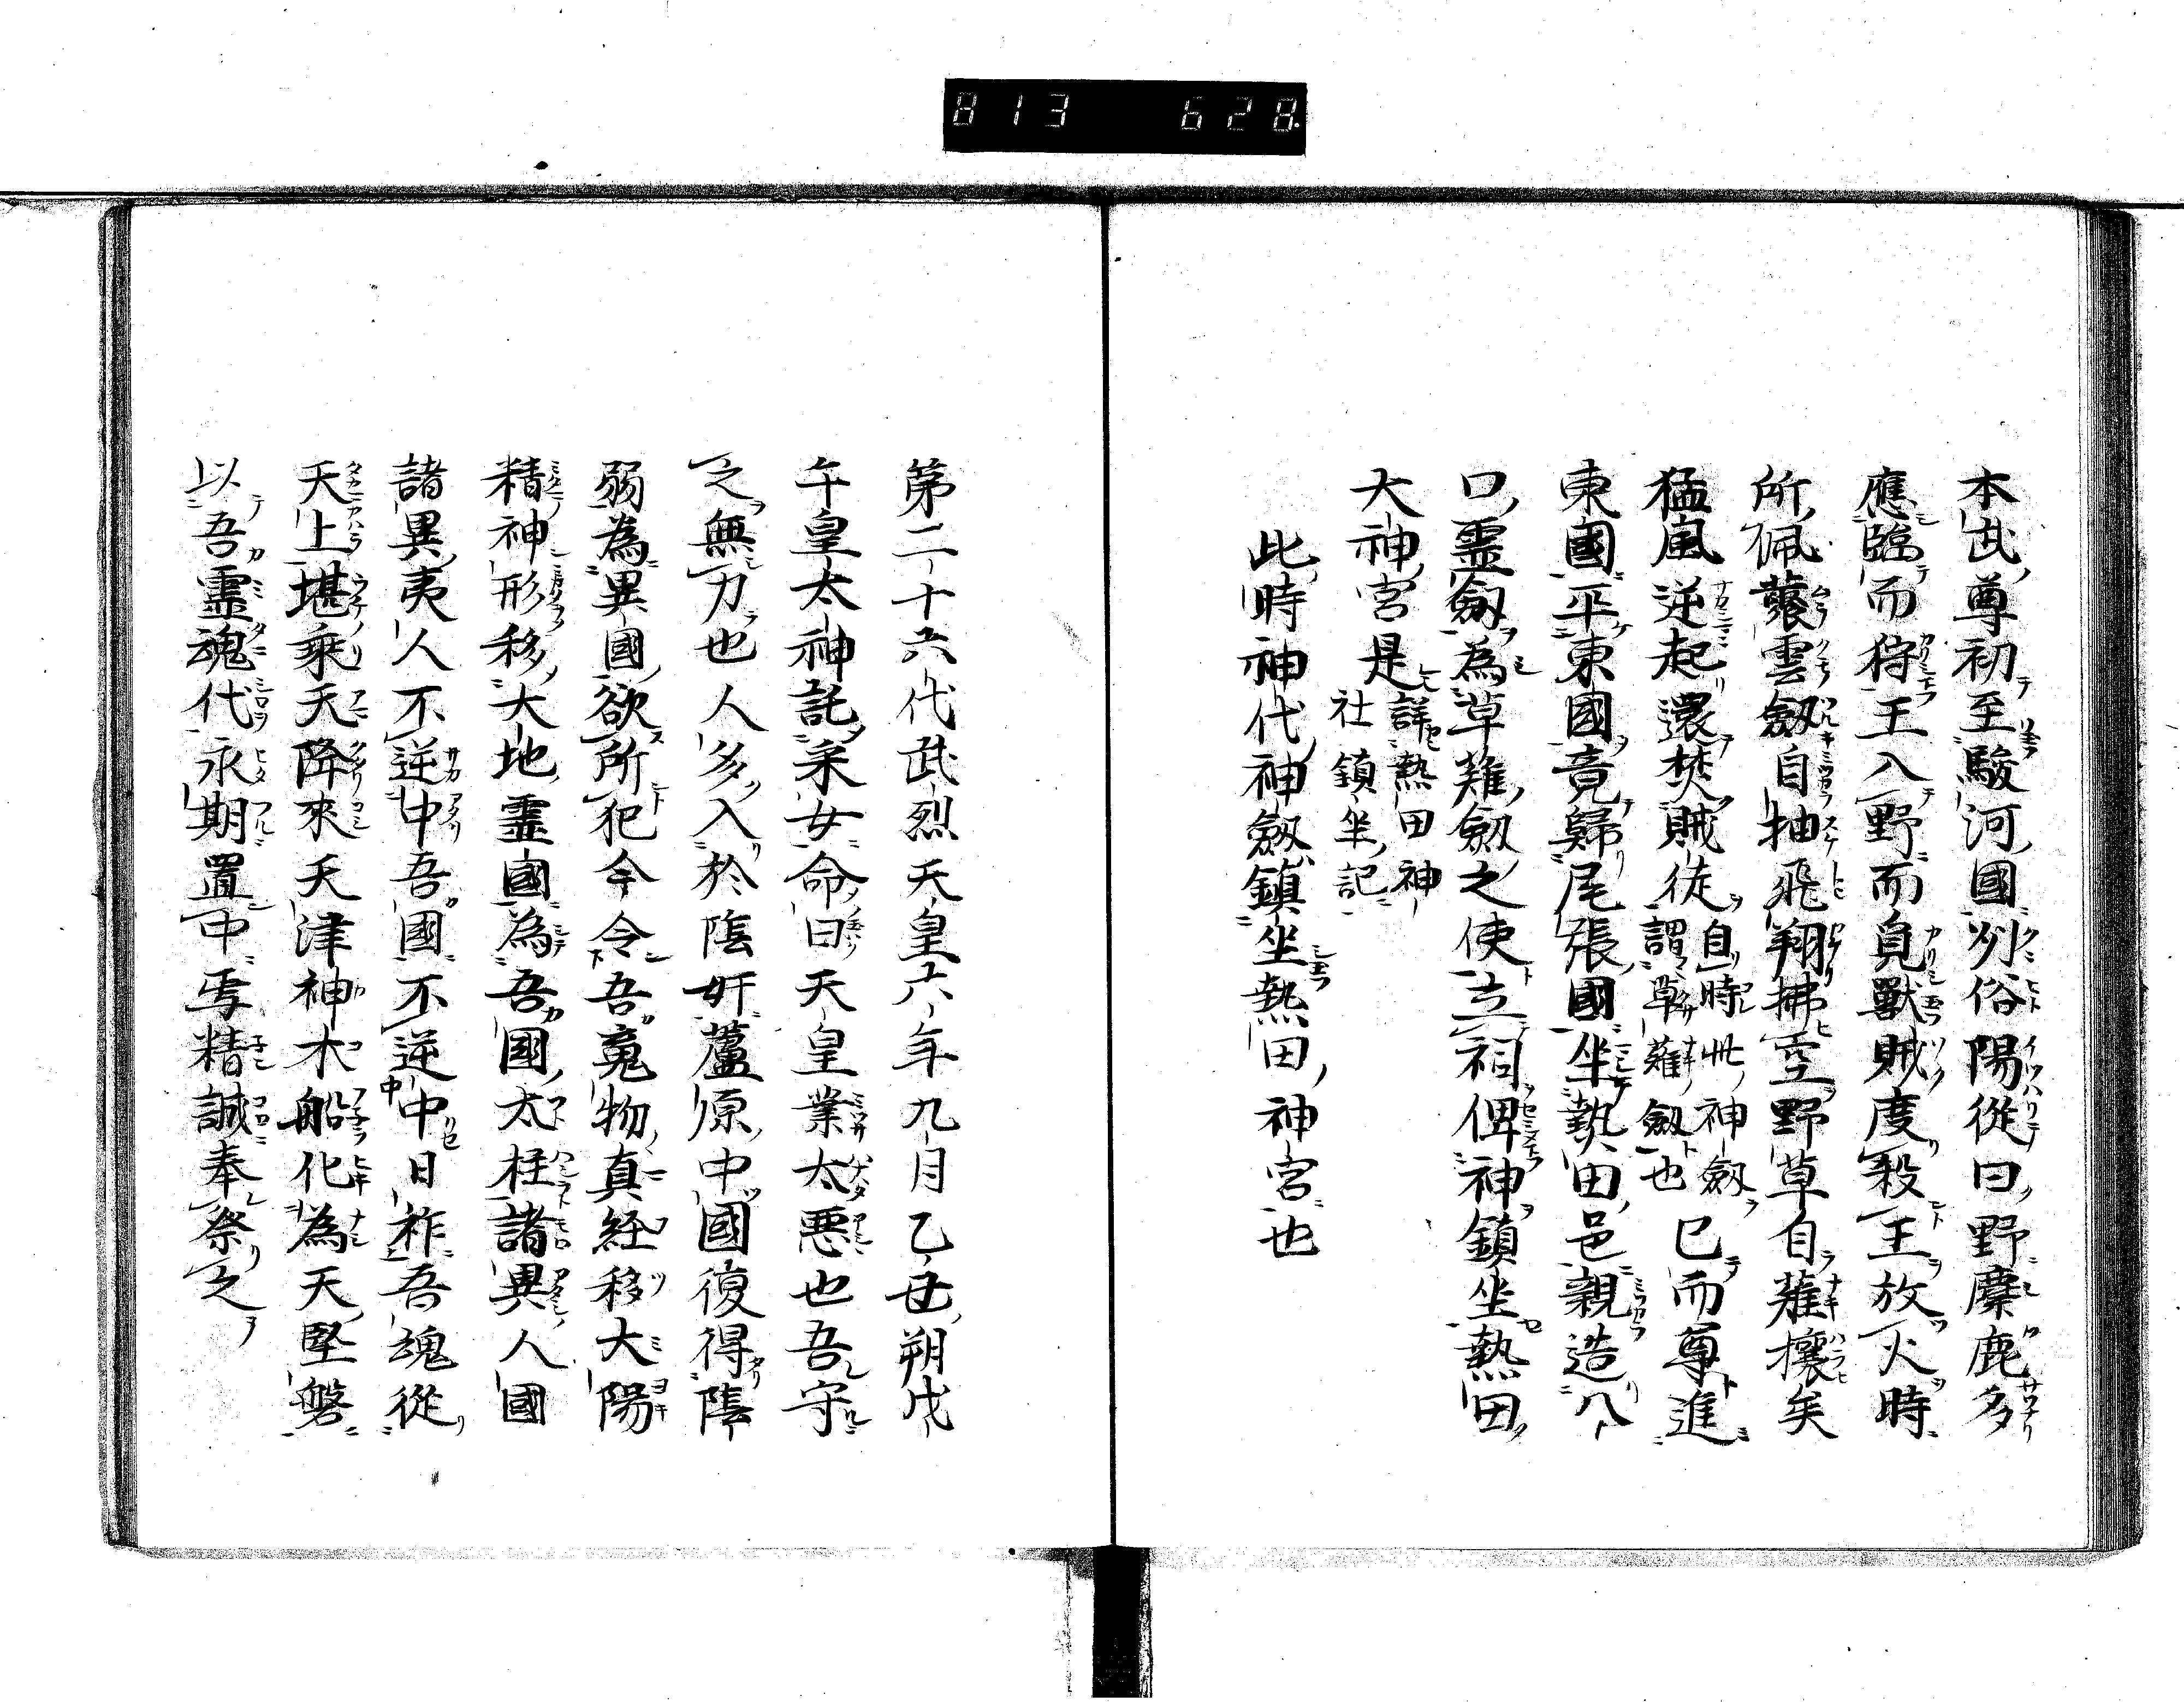 813 628
本武尊初至駿河國州俗陽從曰野麋鹿多
應臨而狩王入野而覓獸賊度殺王放火時
所佩䕺雲劔自抽飛翔拂空野草自薙攘矣
猛風逆起還焚賊徒自時此神劔謂草薙劔也已而尊進
東國平東國竟歸尾張國坐熱田邑親造八
口靈劔為草薙劔之使立祠俾神鎮坐熱田
大神宮是詳熱田神社鎮坐記
此時神代神劔鎮坐熱田神宮也
第二十六代武烈天皇六年九月乙丑朔戊
午皇太神託采女命曰天皇業太悪也吾守
之無力也人多入於陰奸蘆原中國復得陰
弱為異國欲所犯今令吾寬物真経移大陽
精神形移大地靈國為吾國太柱諸異人國
諸異夷人不逆中吾國不逆中日祚吾魂從
天上堪乘天降來天津神木船化為天堅磐
以吾靈魂代永期置中専精誠奉祭之